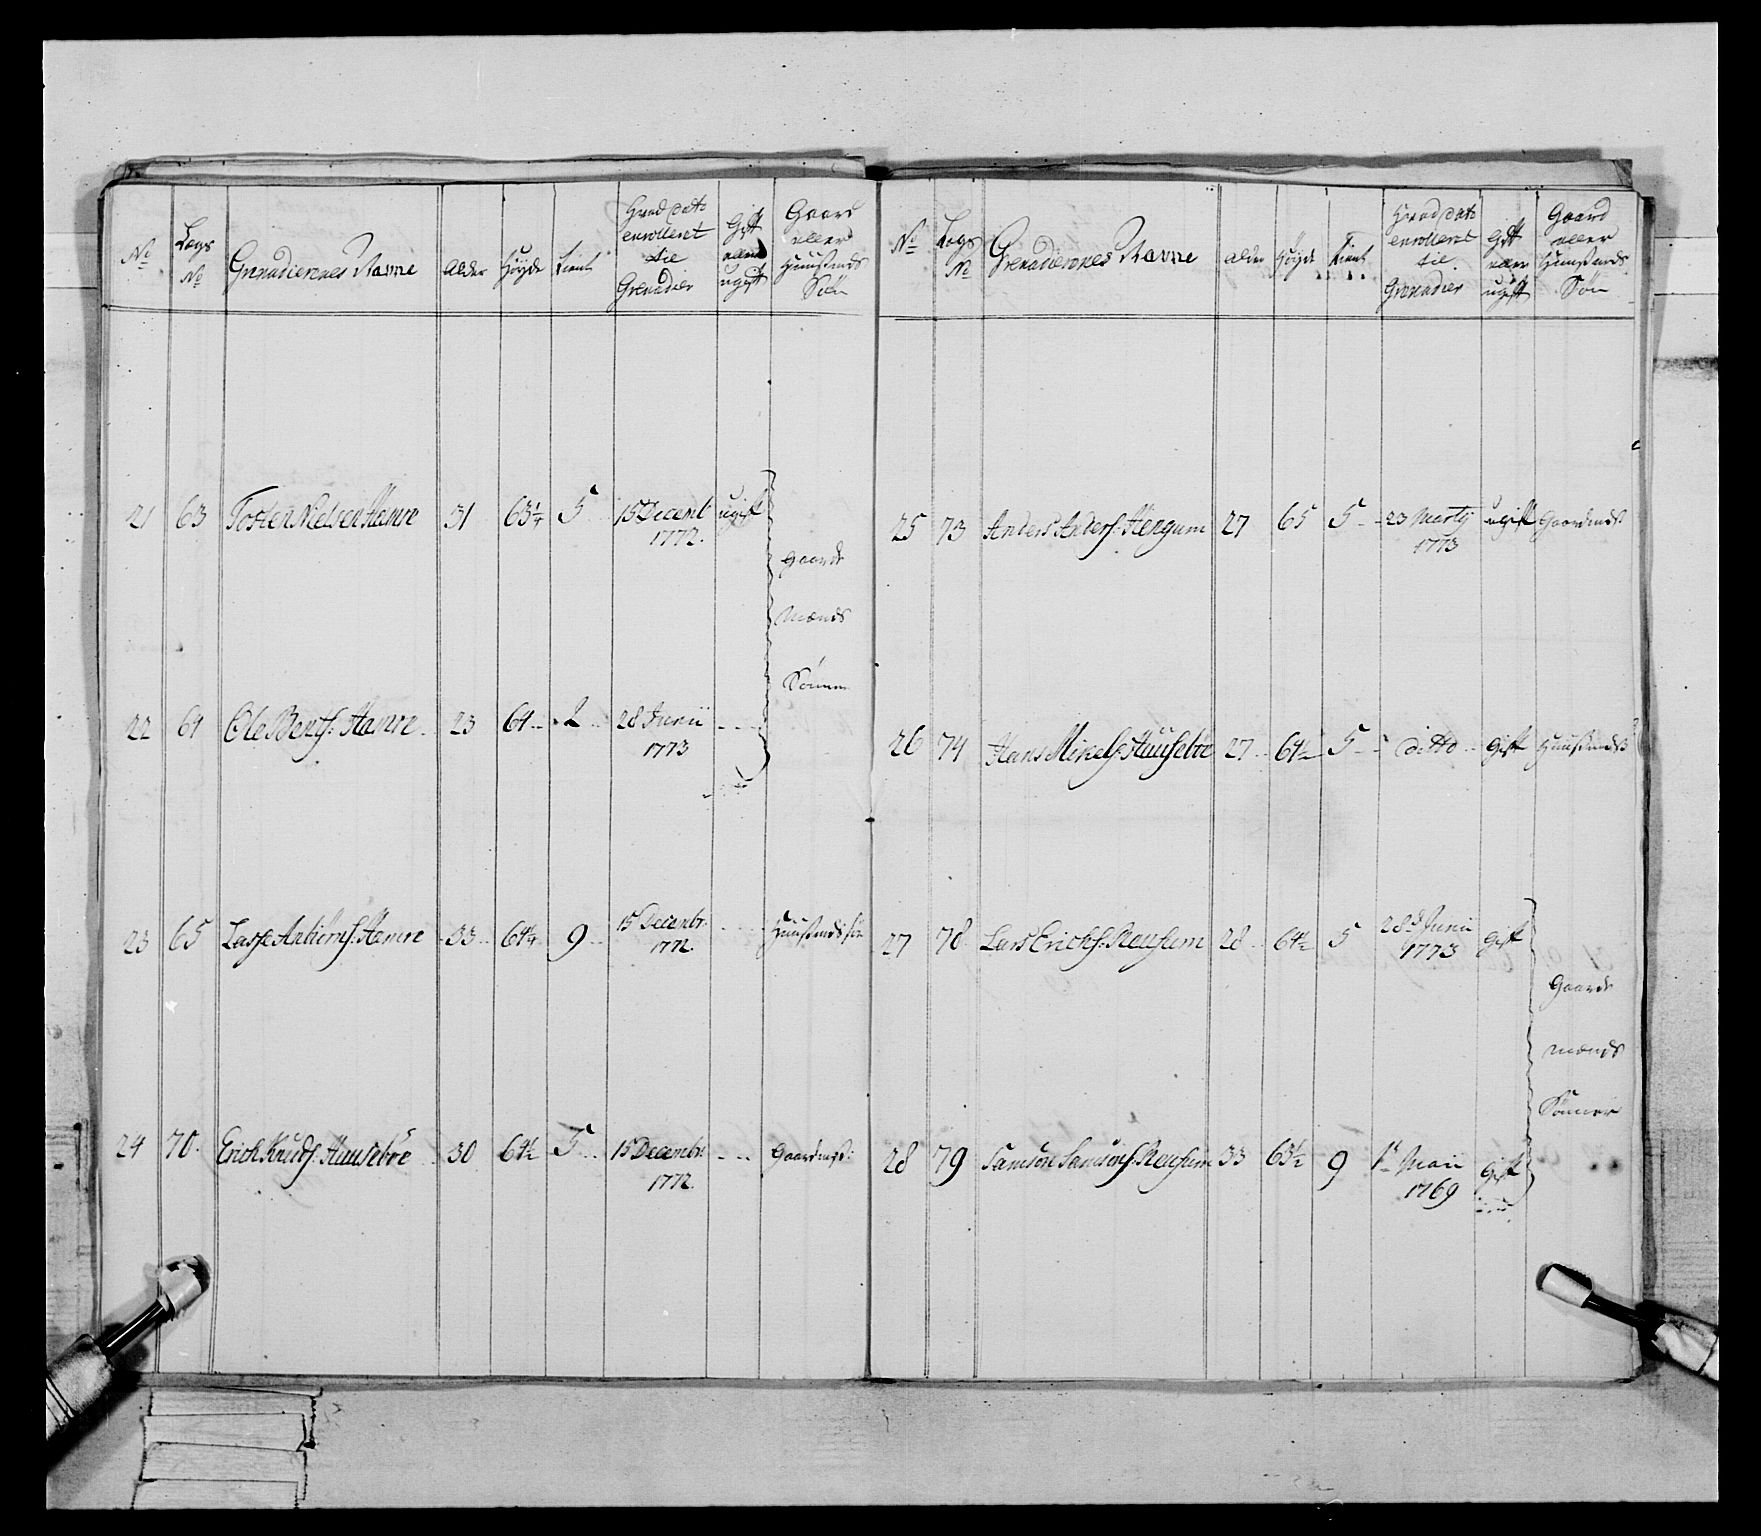 No
Lægs No
Grenadierenes Navne
Alder
Høyde
Tient
Hvad dato enrolleret til Grenadier
Gift eller ugift
Gaard eller Huusmands Søn
21 63 Tosten Nielsen Hamre 31 63¼ 5 15 Decemb: 1772. ugift
Gaard Mænds Sønner
22 64 Ole Bentf: Hamre 23 64 2 28 Junii 1773
23 65 Lasse Hamre 33 64¼ 9 15 Decembr. 1772. Huusmands søn
24 70. Erich Knudf: Huusebøe 30 64½ 5 15 Decembr: 1772. Gaardmds:
No
Lægs No
Grenadierenes Navne
alder
Høyde
Tient
Hvad dato enrolleret til Grenadier
Gift eller ugift
Gaard eller Huusmands Søn
25 73 Anders Andersf: Hengum 27 65 5 23 Marty 1773 ugift Gaardmds
26 74 Hans Mikelf: Huusebøe 27 64½ 5 ditto gift Huusmds
27 78 Lars Erichf: Reusum 28 64½ 5 28d Junii 1773 gift
Gaard mænds Sønner
28 79 Samson Samsonf: Reusum 33 63½ 9 1t Maii 1769 gift